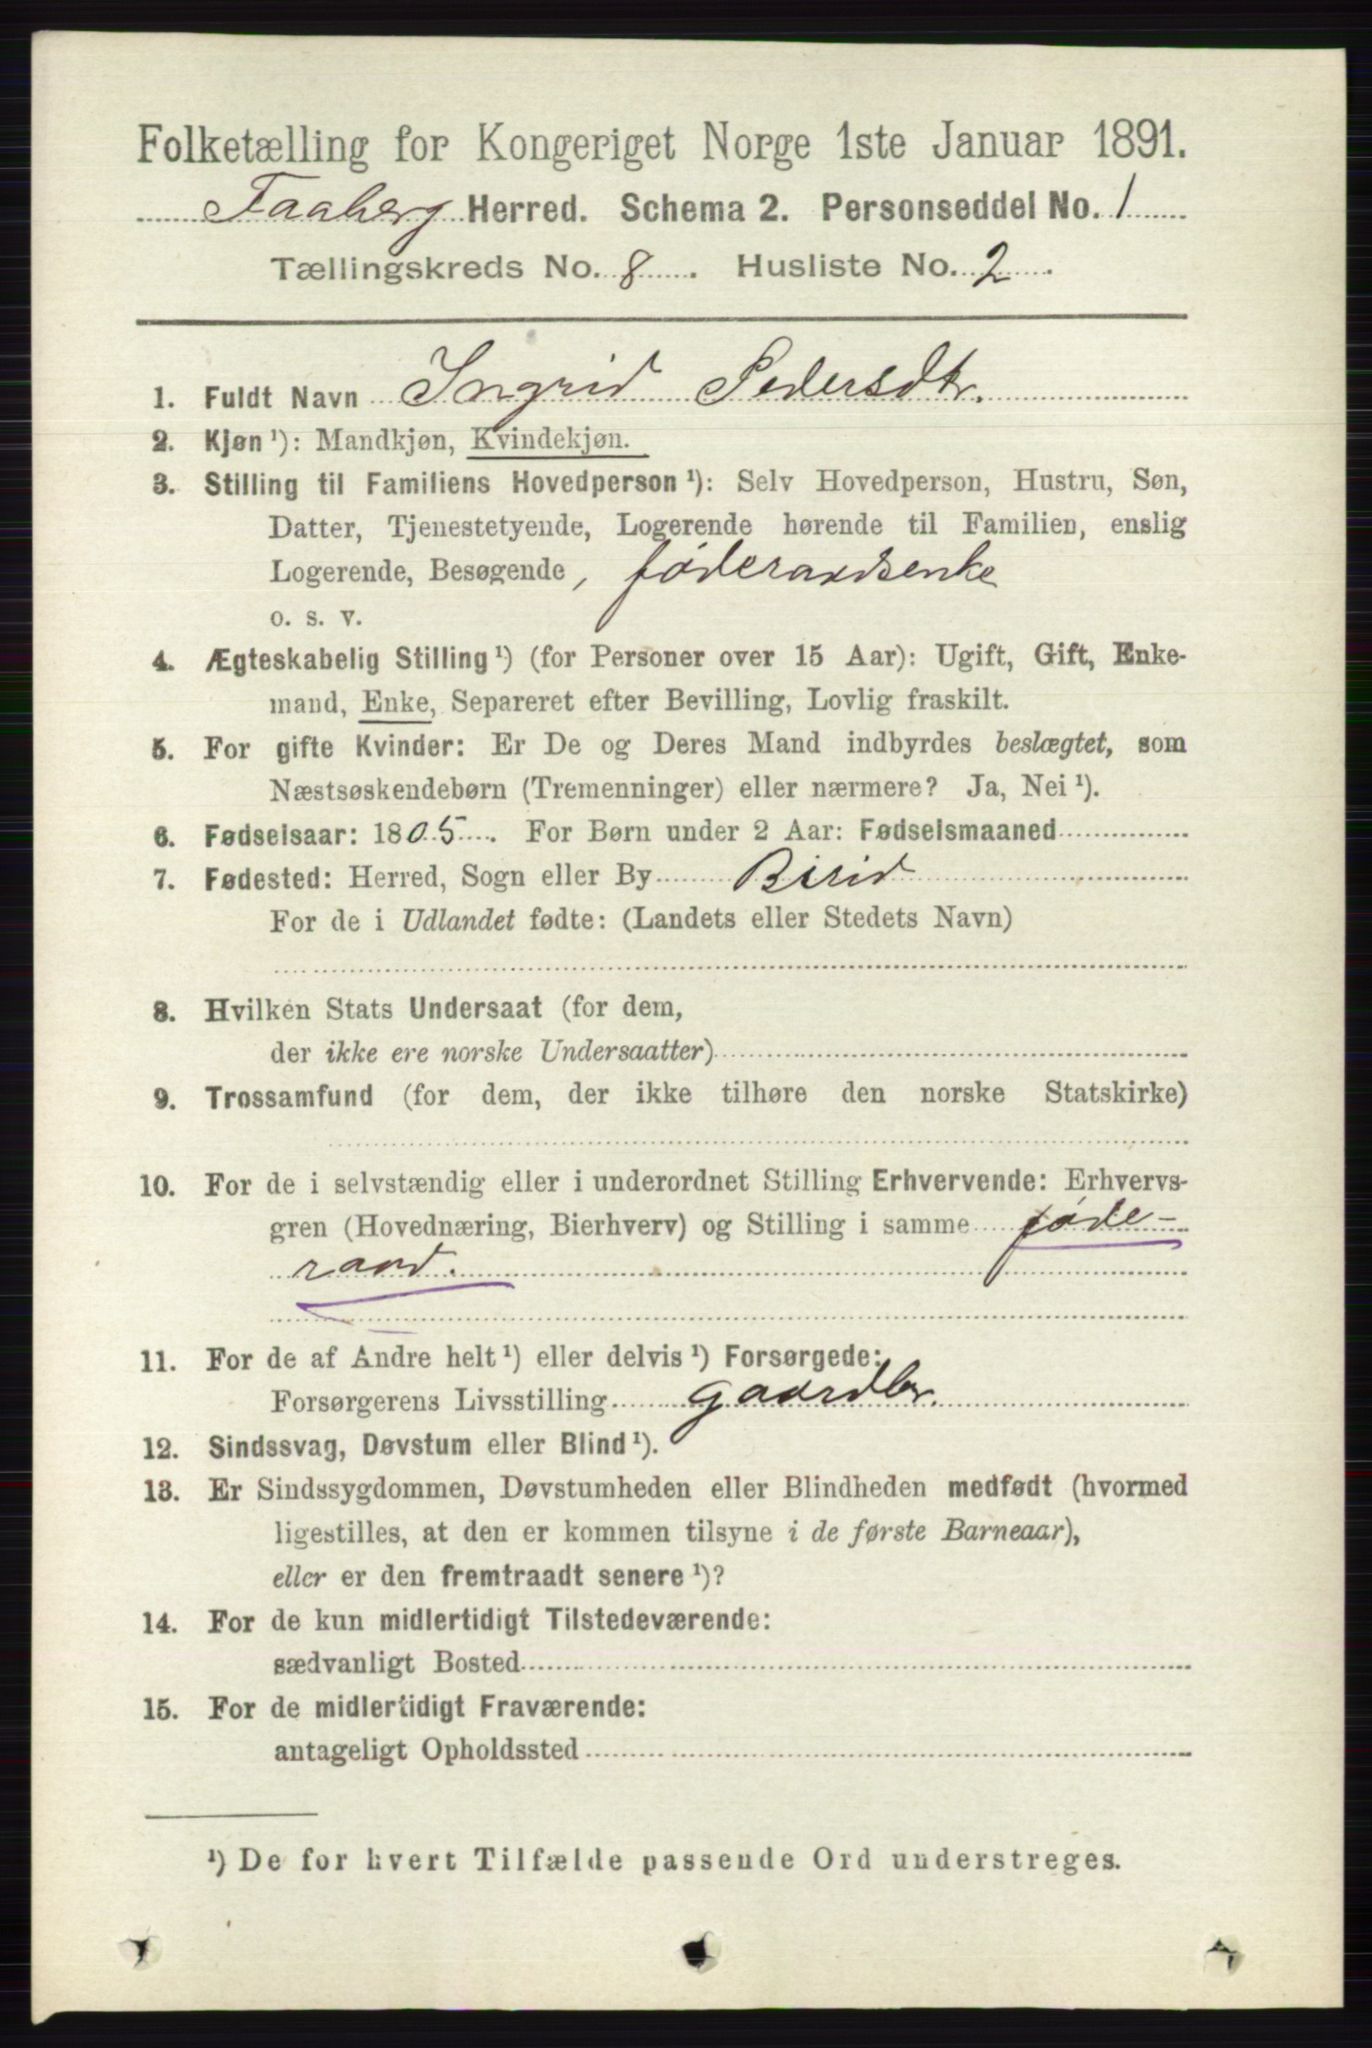 Folketælling for Kongeriget Norge 1ste Januar 1891.
Faaberg Herred. Schema 2. Personseddel No. 1
Tællingskreds No. 8. Husliste No. 2
1. Fuldt Navn Ingrid Pedersdtr.
2. Kjøn ¹): Mandkjøn, Kvindekjøn.
3. Stilling til Familiens Hovedperson ¹): Selv Hovedperson, Hustru, Søn,
Datter, Tjenestetyende, Logerende hørende til Familien, enslig
Logerende, Besøgende, føderaadsenke
o. s. v.
4. Ægteskabelig Stilling ¹) (for Personer over 15 Aar): Ugift, Gift, Enke-
mand, Enke, Separeret efter Bevilling, Lovlig fraskilt.
5. For gifte Kvinder: Er De og Deres Mand indbyrdes beslægtet, som
Næstsøskendebørn (Tremenninger) eller nærmere? Ja, Nei ¹).
6. Fødselsaar: 1805. For Børn under 2 Aar: Fødselsmaaned
7. Fødested: Herred, Sogn eller By Birid
For de i Udlandet fødte: (Landets eller Stedets Navn)
8. Hvilken Stats Undersaat (for dem,
der ikke ere norske Undersaatter)
9. Trossamfund (for dem, der ikke tilhøre den norske Statskirke)
10. For de i selvstændig eller i underordnet Stilling Erhvervende: Erhvervs-
gren (Hovednæring, Bierhverv) og Stilling i samme føde-
raad.
11. For de af Andre helt ¹) eller delvis ¹) Forsørgede:
Forsørgerens Livsstilling gaardbr.
12. Sindssvag, Døvstum eller Blind ¹).
13. Er Sindssygdommen, Døvstumheden eller Blindheden medfødt (hvormed
ligestilles, at den er kommen tilsyne i de første Barneaar),
eller er den fremtraadt senere ¹)?
14. For de kun midlertidigt Tilstedeværende:
sædvanligt Bosted
15. For de midlertidigt Fraværende:
antageligt Opholdssted
¹) De for hvert Tilfælde passende Ord understreges.